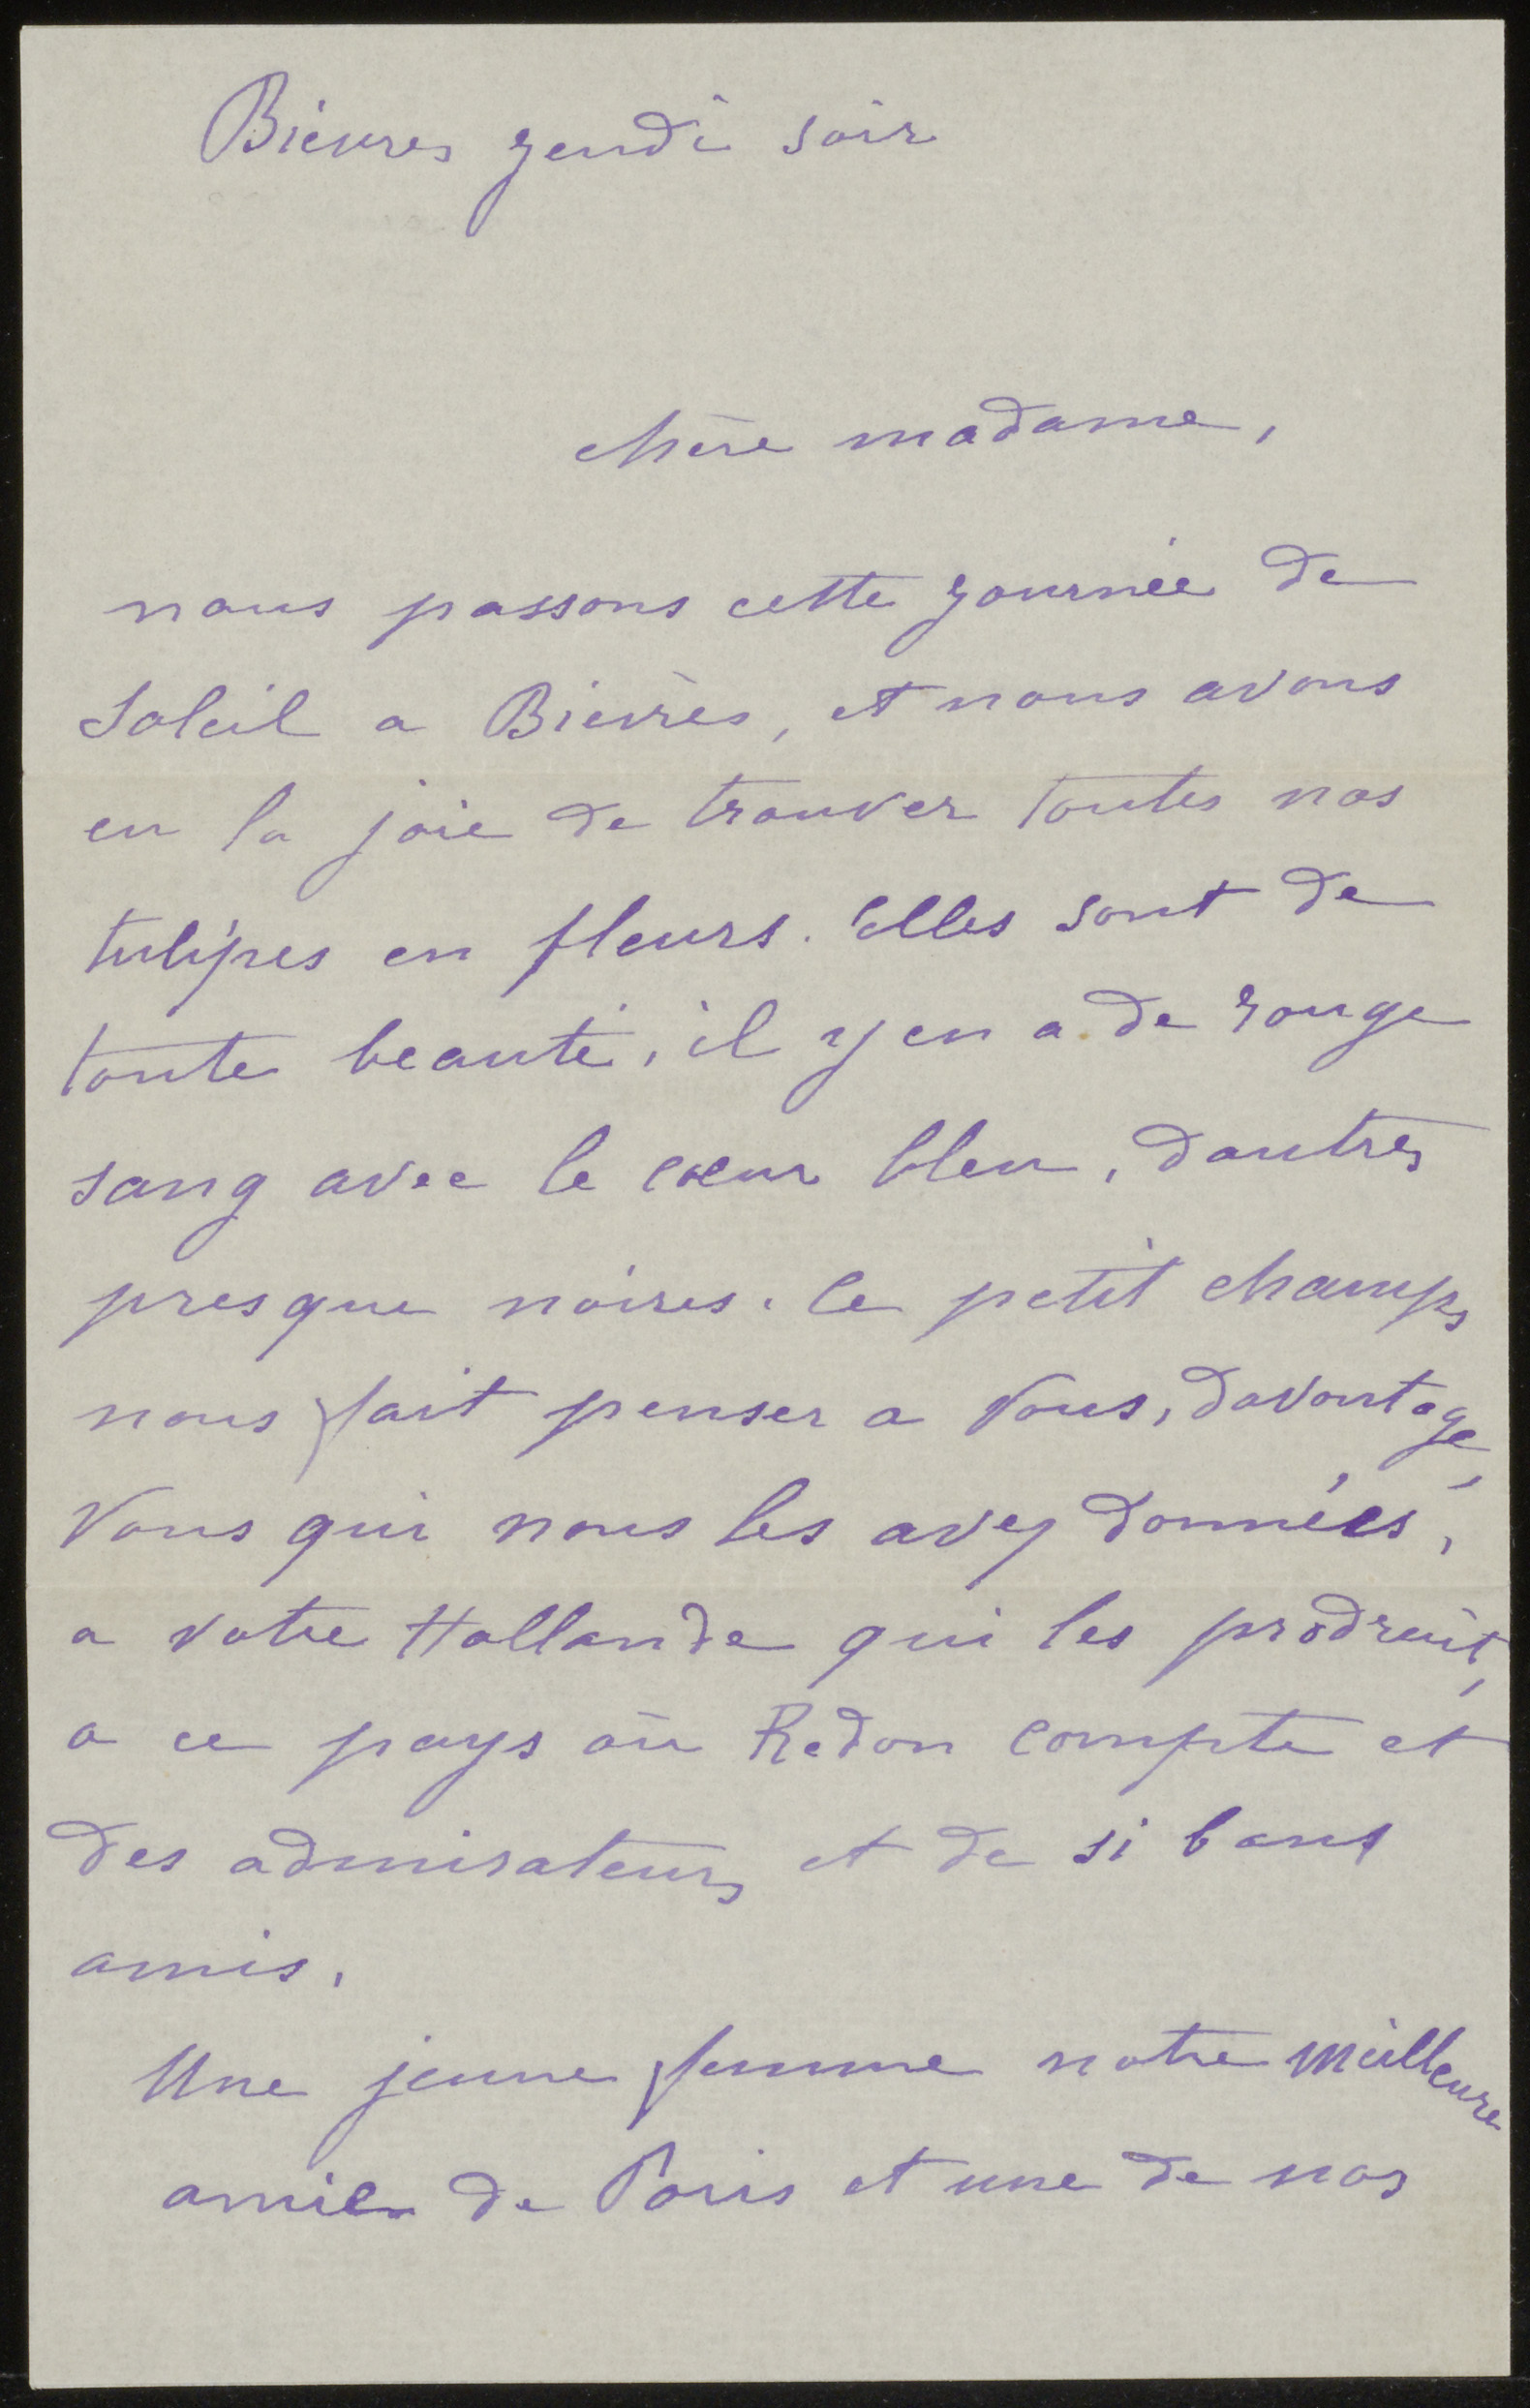 Bievres jeudi soir
chère madame,
nous passons cette journée de
soleil a Bievrès, et nous avons
eu la joie de trouver toutes nos
tulipes en fleurs. Elles sont de
toute beauté, il y en a de rouge
sang avec le cœur bleu, dautres
presque noires. Ce petit champs
nous fait penser a vous, davantage,
vous qui nous les avez données,
a votre Hollande qui les produit,
a ce pays où Redon compte et
des admirateurs et de si bons
amis.
Une jeune femme notre meilleure
amie de Paris et une de nos